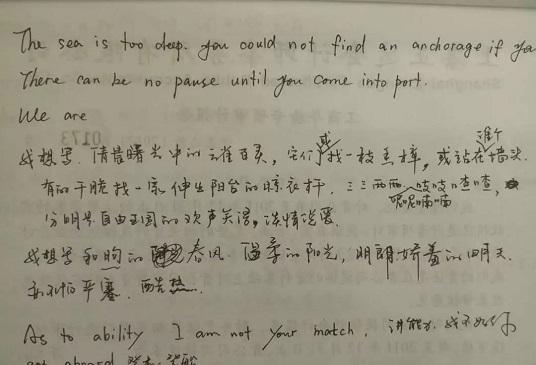 The sea is too deep. you could not find an anchorage if you
There can be no pause until you come into port.
We are
0173
我想写. 借昔曙光中的云雀百灵, 它们或找一枝玉樟, 或站在墙头
有的干脆找一家伸出阳台的晾衣杆. 三三两两 吱吱喳喳,
呢呢喃喃
分明是自由王国的欢声笑语, 谈情说爱
我想写和昫的春风 温柔的阳光, 明朗娇羞的四月天.
而不怕严寒. 酷热.
As to ability I am not your match. 讲能力. 我不如你
get abroad